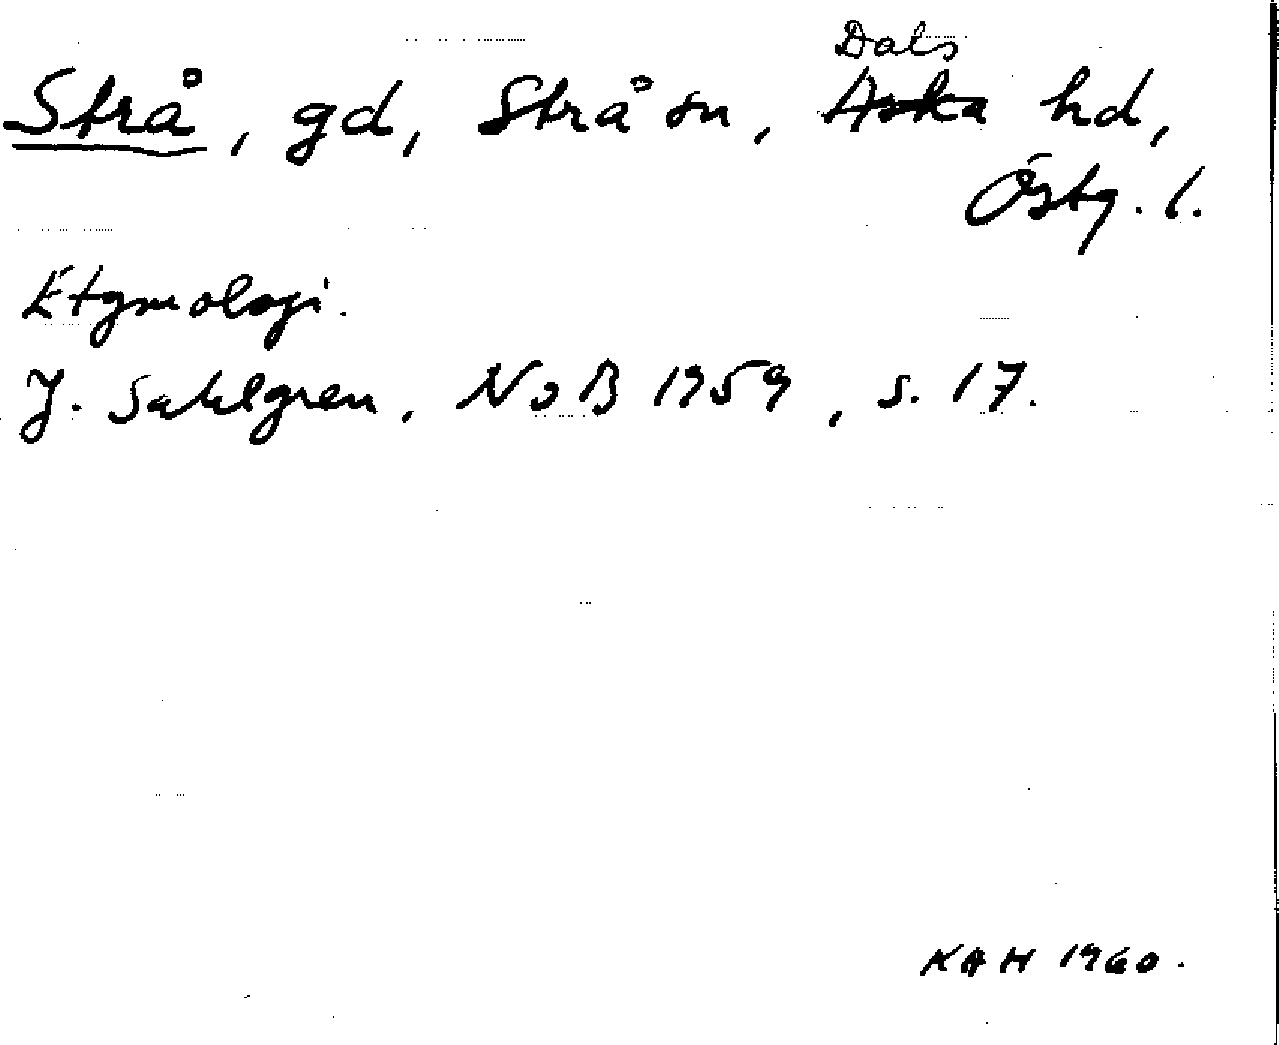 Strå, gd, Strå sn, Dals hd,
Östg. l.
Etymologi.
J. Sahlgren, NoB 1959, s. 17.
KAH 1960.